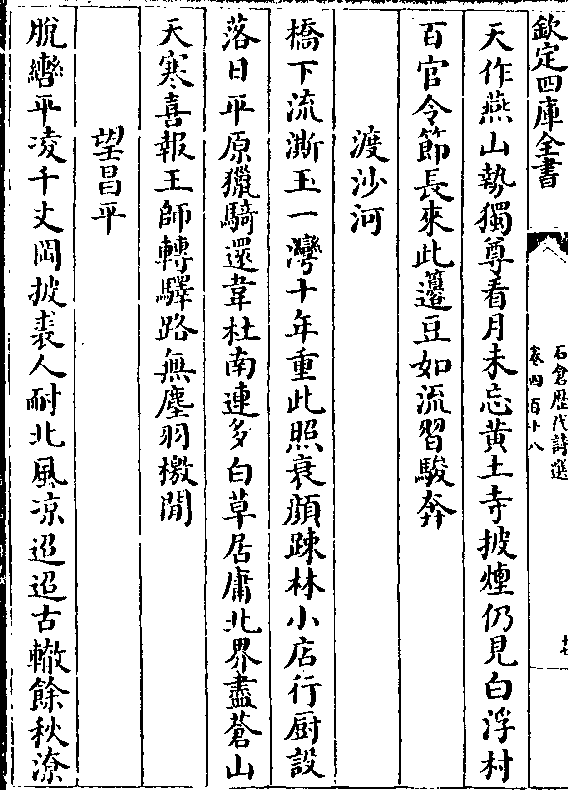 欽定四庫全書
石倉歴代詩選
卷四百十八
天作燕山執獨尊看月未忘黄土寺披煙仍見白浮村
百官令節長來此籩豆如流習駿奔
渡沙河
橋下流澌玉一灣十年重此照衰顔踈林小店行厨設
落日平原獵騎還韋杜南連多白草居庸北界盡蒼山
天寒喜報王師轉驛路無塵羽檄閒
望昌平
脫轡平凌千丈岡披裘人耐北風凉迢迢古轍餘秋潦